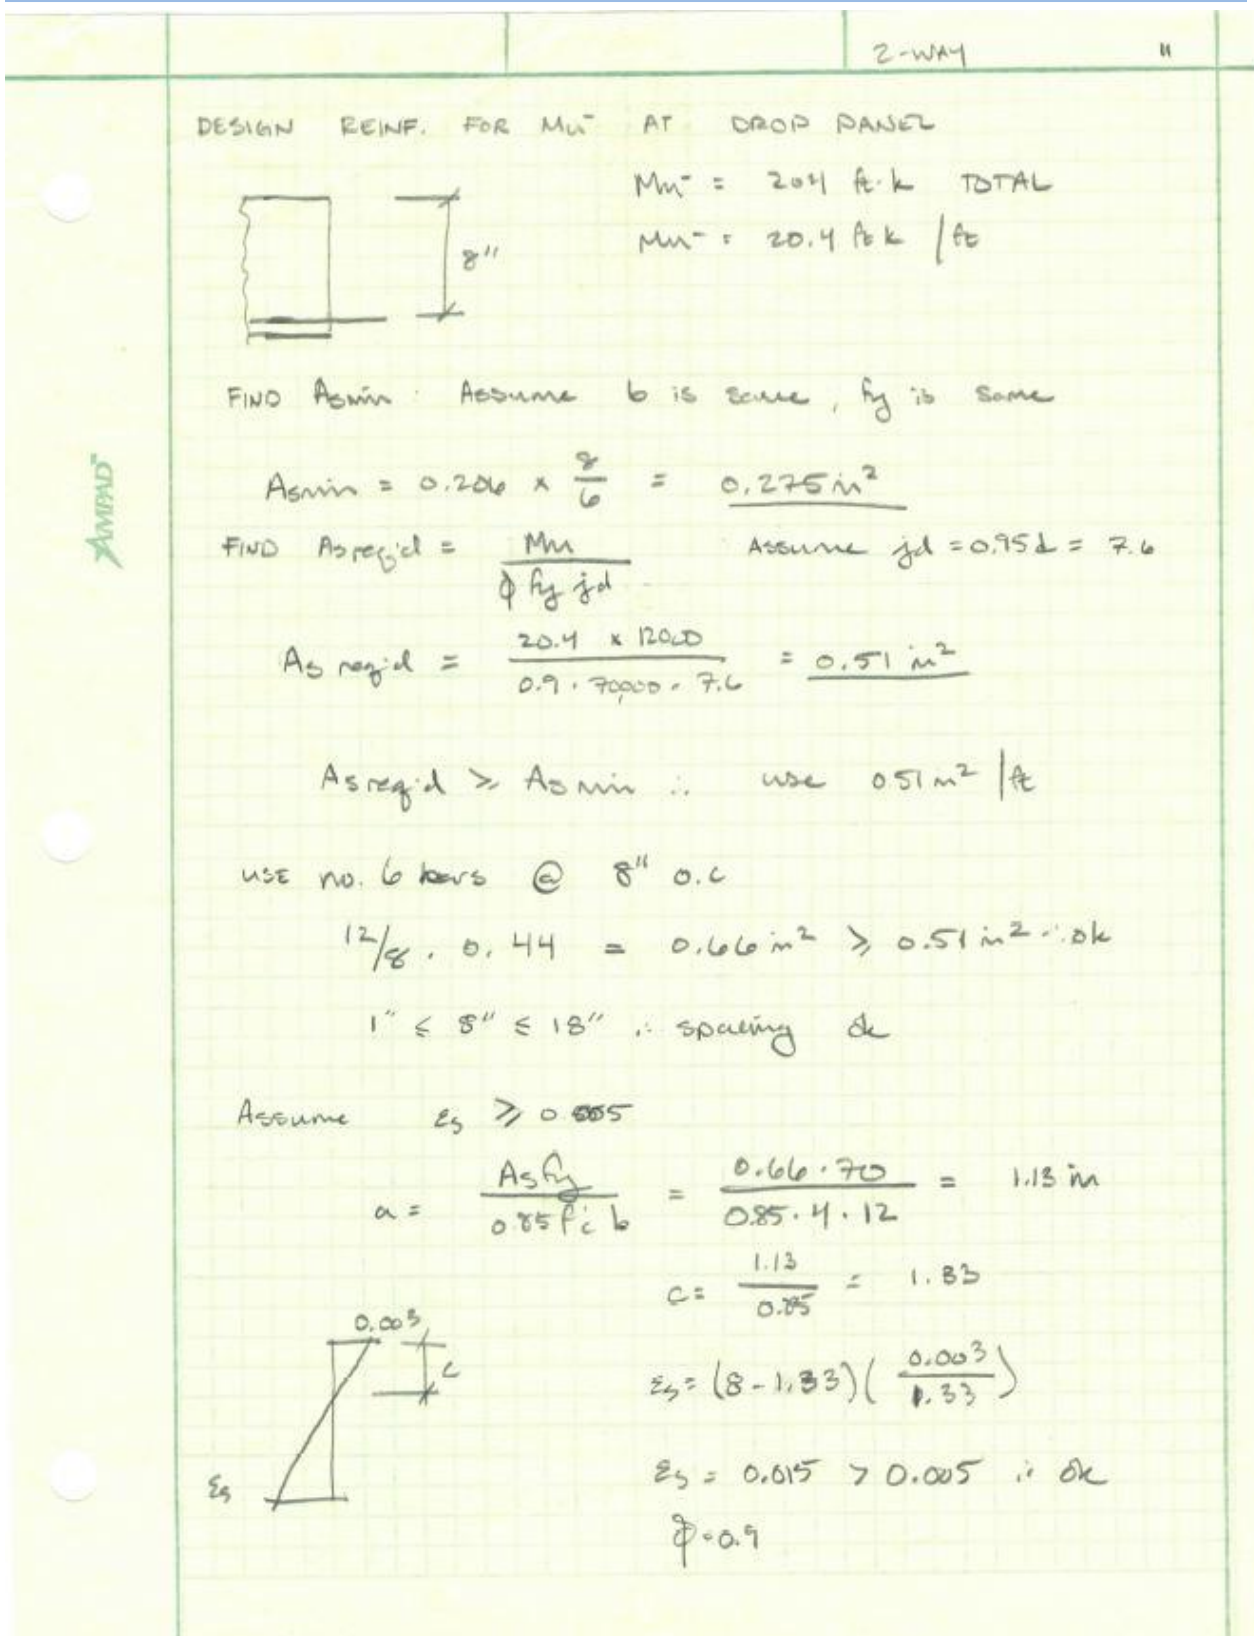 2-WAY 11
DESIGN REINF. FOR Mu- AT DROP PANEL
Mu- = 204 ft·k TOTAL
Mu- = 20.4 ft k /ft
8"
FIND Asmin: Assume b is same, fy is same
Asmin = 0.206 x 8/6 = 0.275 in²
AMPAD
FIND As req'd = Mu / φ fy jd Assume jd = 0.95d = 7.6
As req'd = 20.4 x 12000 / 0.9 · 70,000 · 7.6 = 0.51 in²
As req'd ≥ As min ∴ use 0.51 in² /ft
USE no. 6 bars @ 8" o.c
12/8 · 0.44 = 0.66 in² ≥ 0.51 in² ∴ ok
1" ≤ 8" ≤ 18" ∴ spacing ok
Assume εs ≥ 0.005
a = As fy / 0.85 f'c b = 0.66 · 70 / 0.85 · 4 · 12 = 1.13 in
c = 1.13 / 0.85 = 1.33
0.003
c
εs = (8 - 1.33)(0.003 / 1.33)
εs
εs = 0.015 > 0.005 ∴ ok
φ = 0.9